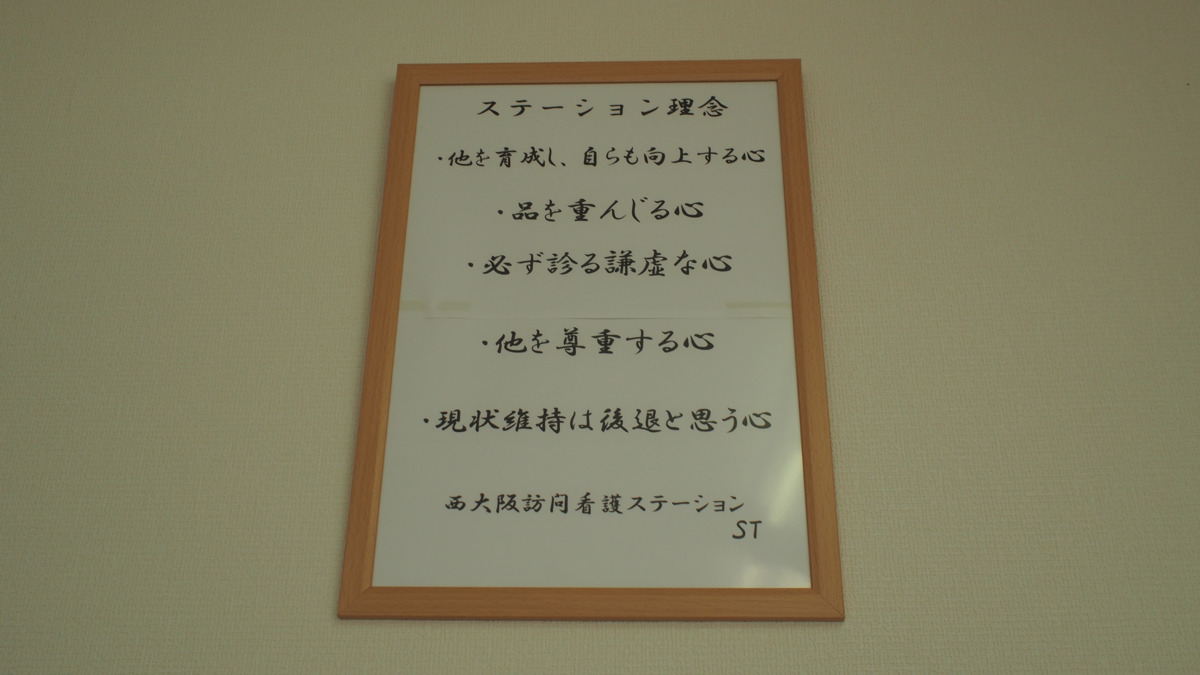 ステーション理念
・他を育成し、自らも向上する心
・品を重んじる心
・必ず診る謙虚な心
・他を尊重する心
・現状維持は後退と思う心
西大阪訪問看護ステーション
ST